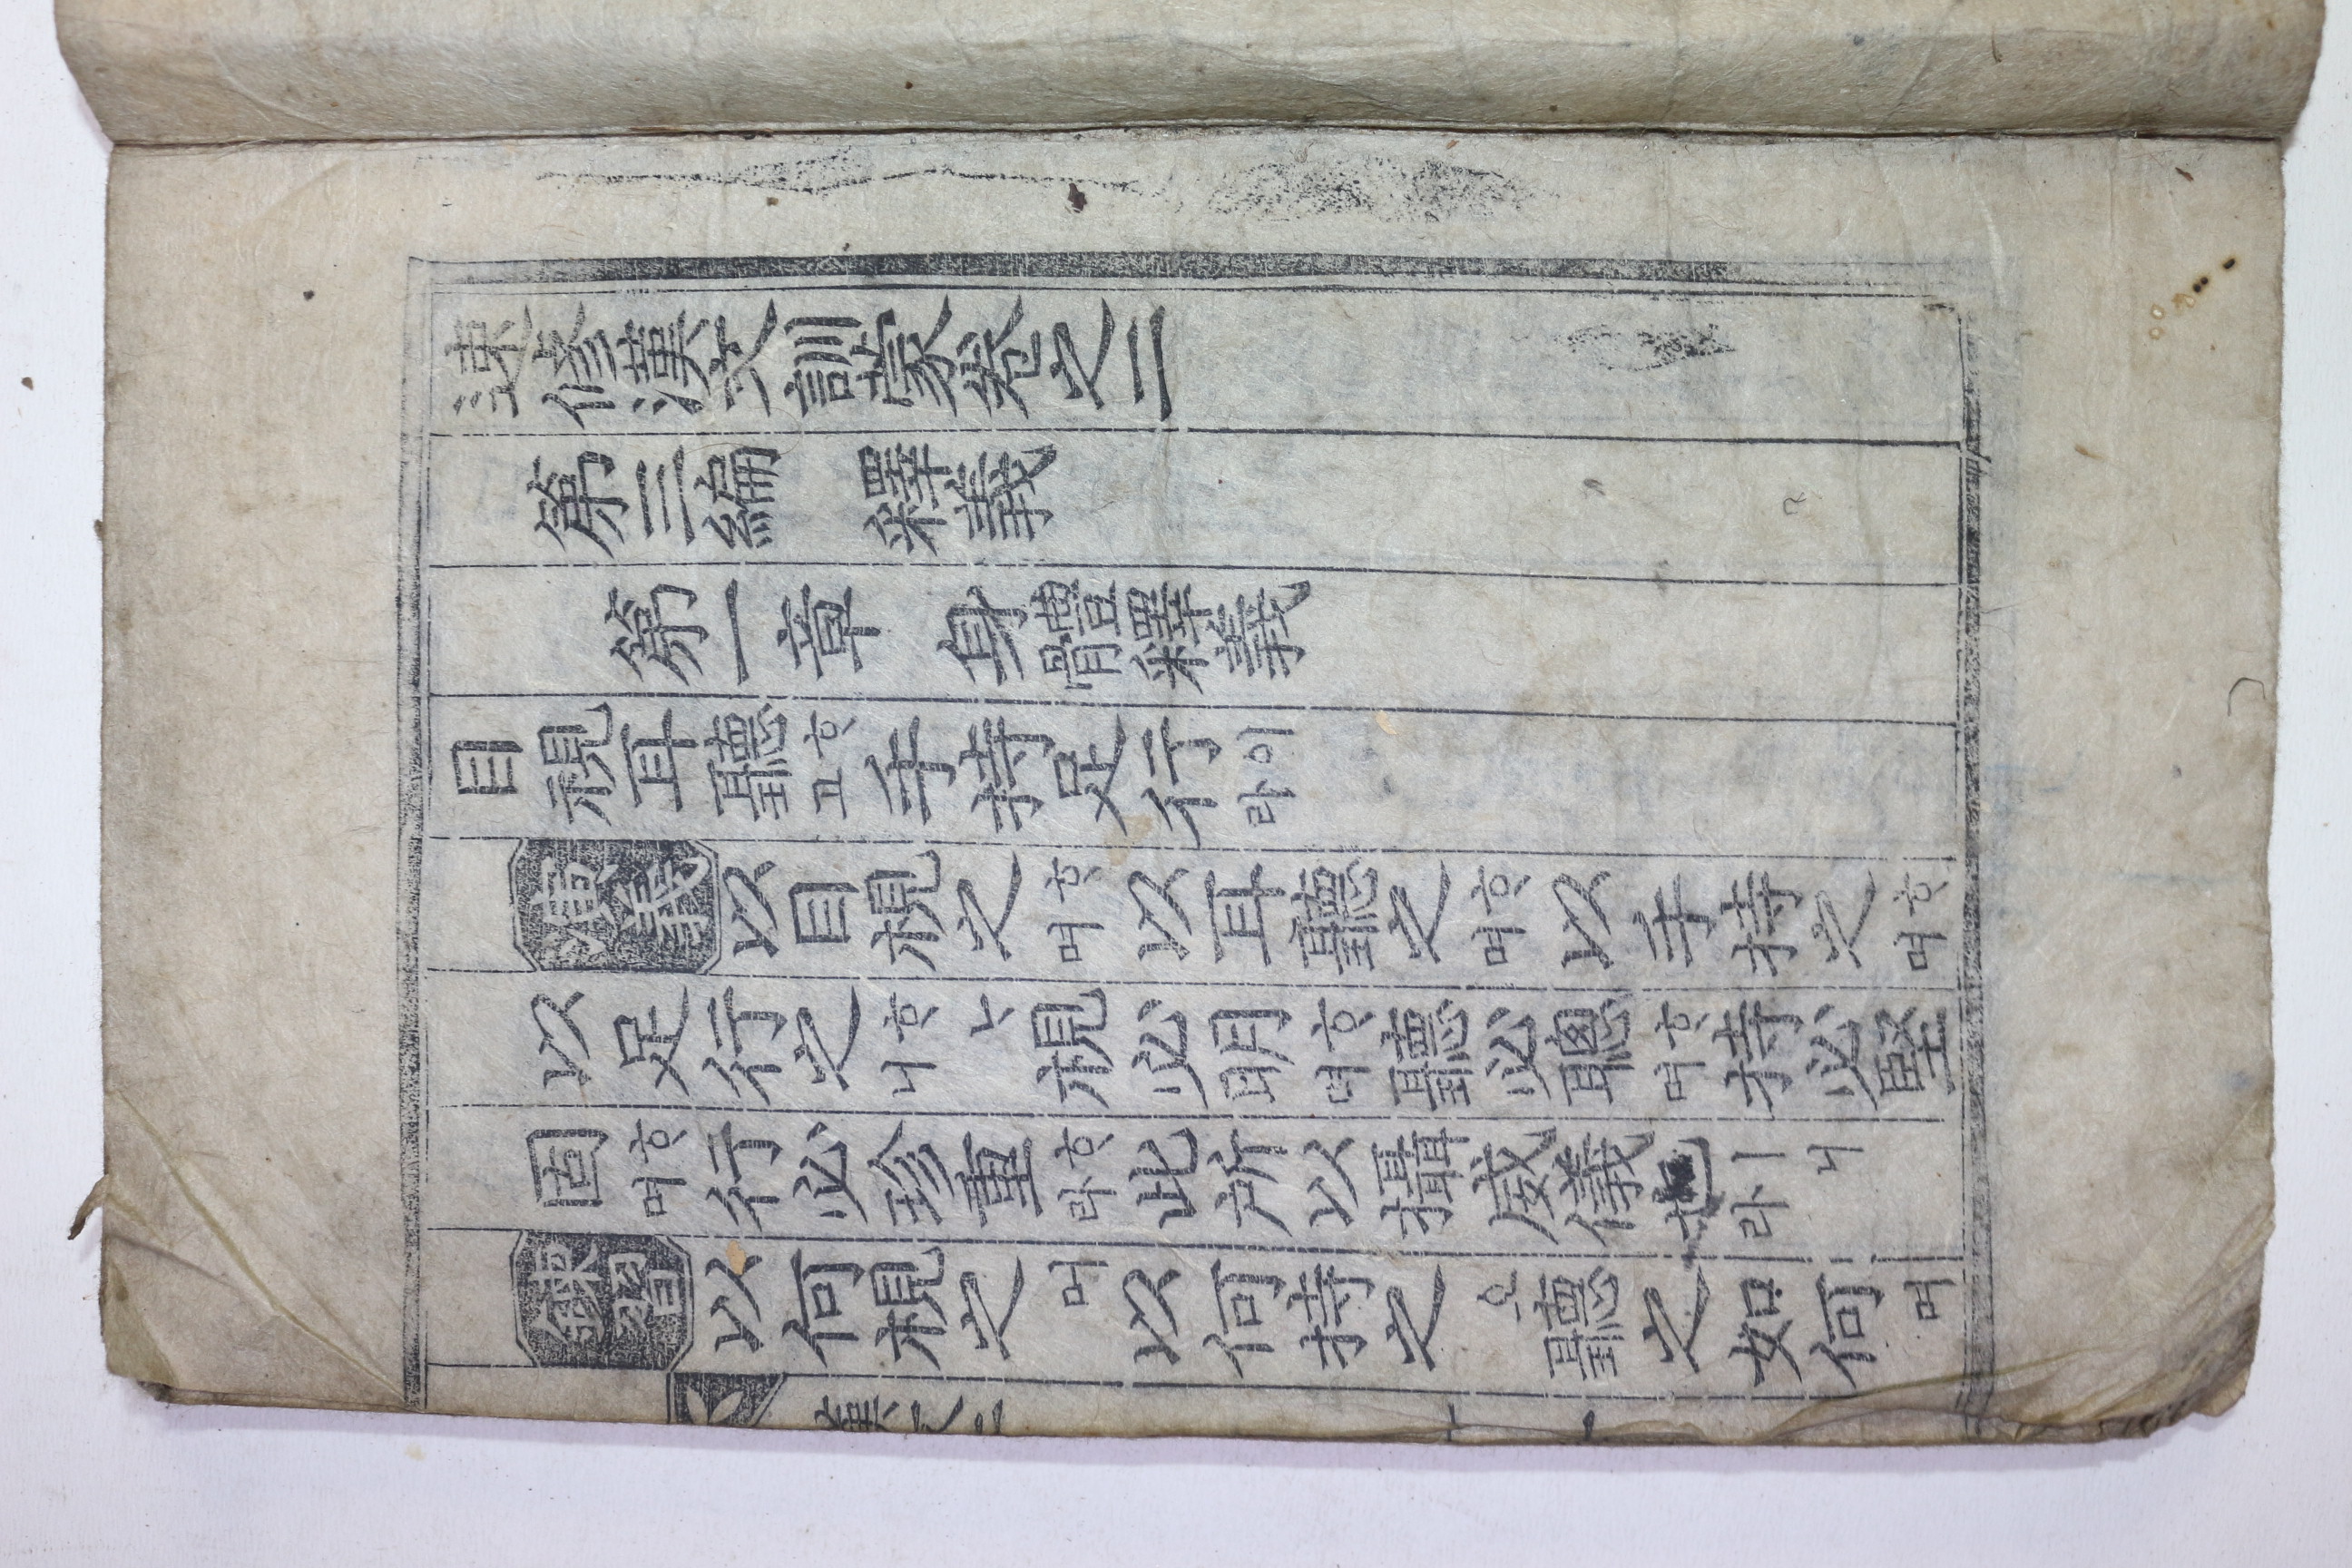 速修漢文訓蒙卷之二
第三編 釋義
第一章 身體釋義
目視耳聽ᄒᆞ고手持足行이라
演義以目視之ᄒᆞ며以耳聽之ᄒᆞ며以手持之ᄒᆞ며
以足行之ᄒᆞᄂᆞ니視必明ᄒᆞ며聽必聰ᄒᆞ며持必堅
固ᄒᆞ며行必珍重ᄒᆞ라此所以攝威儀也ㅣ니라
鍊習以何視之며以何持之오聽之如何며